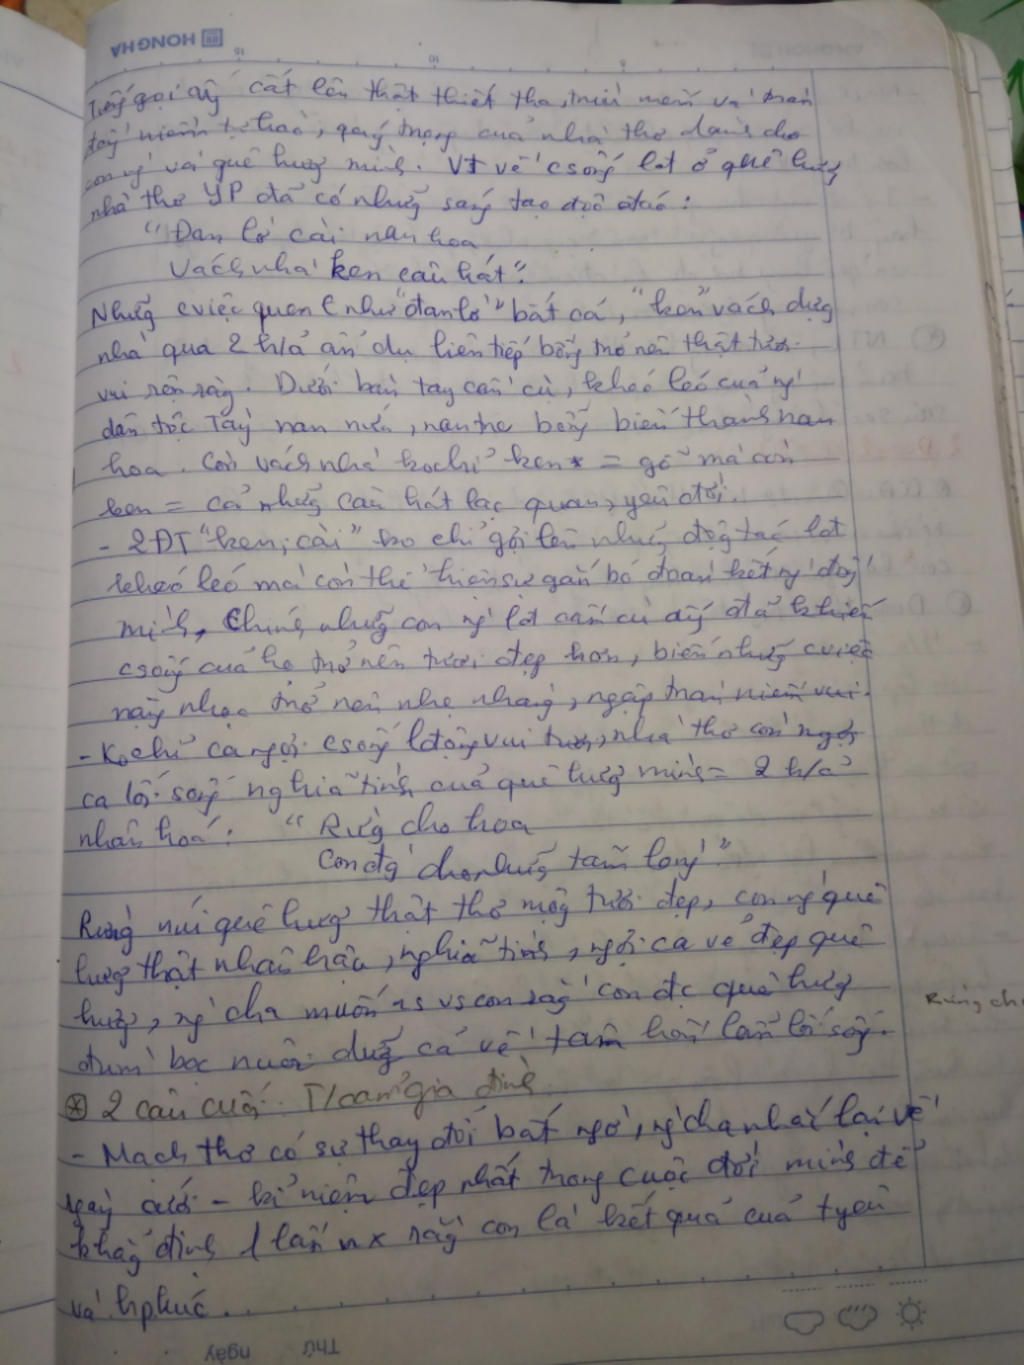 HONG HA
Tiếng gọi ấy cất lên thật thiết tha, trìu mến và tràn
đầy niềm tự hào, quý trọng của nhà thơ dành cho
con ng và quê hương mình. Vt về csống lđ ở quê hương
nhà thơ YP đã có những sáng tạo độc đáo:
"Đan lờ cài nan hoa
Vách nhà ken câu hát".
Những cviệc quen t như "đan lờ" bắt cá, "ken" vách dựng
nhà qua 2 h/ả ẩn dụ liên tiếp bỗng trở nên thật tươi
vui rộn ràng. Dưới bàn tay cần cù, khéo léo của ng
dân tộc Tày nan nứa, nan tre bỗng biến thành nan
hoa. Còn vách nhà ko chỉ ken = gỗ mà còn
ken = cả những câu hát lạc quan, yêu đời.
- 2 ĐT "ken, cài" ko chỉ gợi lên những động tác lđ
khéo léo mà còn thể hiện sự gắn bó đoàn kết ng đồng
mình, Chính những con ng lđ cần cù ấy đã khiến
csống của họ trở nên tươi đẹp hơn, biến những cviệc
nặng nhọc trở nên nhẹ nhàng, ngập tràn niềm vui.
- Ko chỉ ca ngợi csống lđộng vui tươi, nhà thơ còn ngợi
ca lối sống nghĩa tình của quê hương mình = 2 h/ả
nhân hoá: "Rừng cho hoa
Con đg cho những tấm lòng"
Rừng núi quê hương thật thơ mộng tươi đẹp, con ng quê
hương thật nhân hậu, nghĩa tình, ngợi ca vẻ đẹp quê
hương, ng cha muốn ns vs con rằng con đc quê hương
đùm bọc nuôi dưỡng cả về tâm hồn lẫn lối sống.
Rừng ch
* 2 câu cuối: T/cảm gia đình
- Mạch thơ có sự thay đổi bất ngờ, ng cha nhắc lại về
ngày cưới - kỉ niệm đẹp nhất trong cuộc đời mình để
khẳng định 1 lần nx rằng con là kết quả của tyêu
và hphúc.
Thứ
ngày